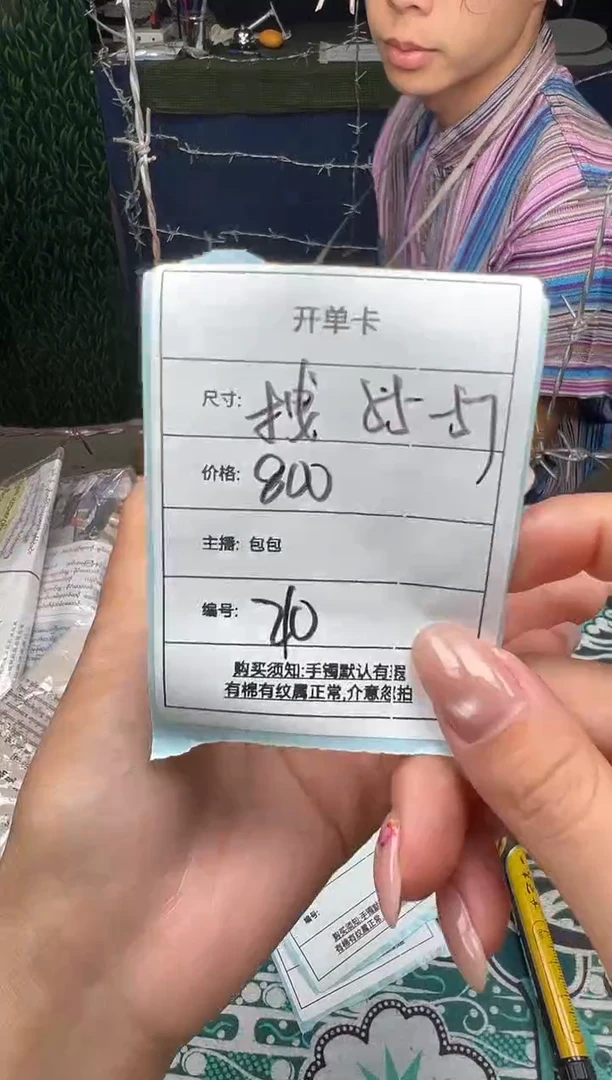 开单卡
尺寸: 55-57
价格: 800
主播: 包包
编号: 210
购买须知:手镯默认有瑕
有棉有纹属正常,介意忽拍
编号:
购买须知:手镯默
有棉有纹属正常